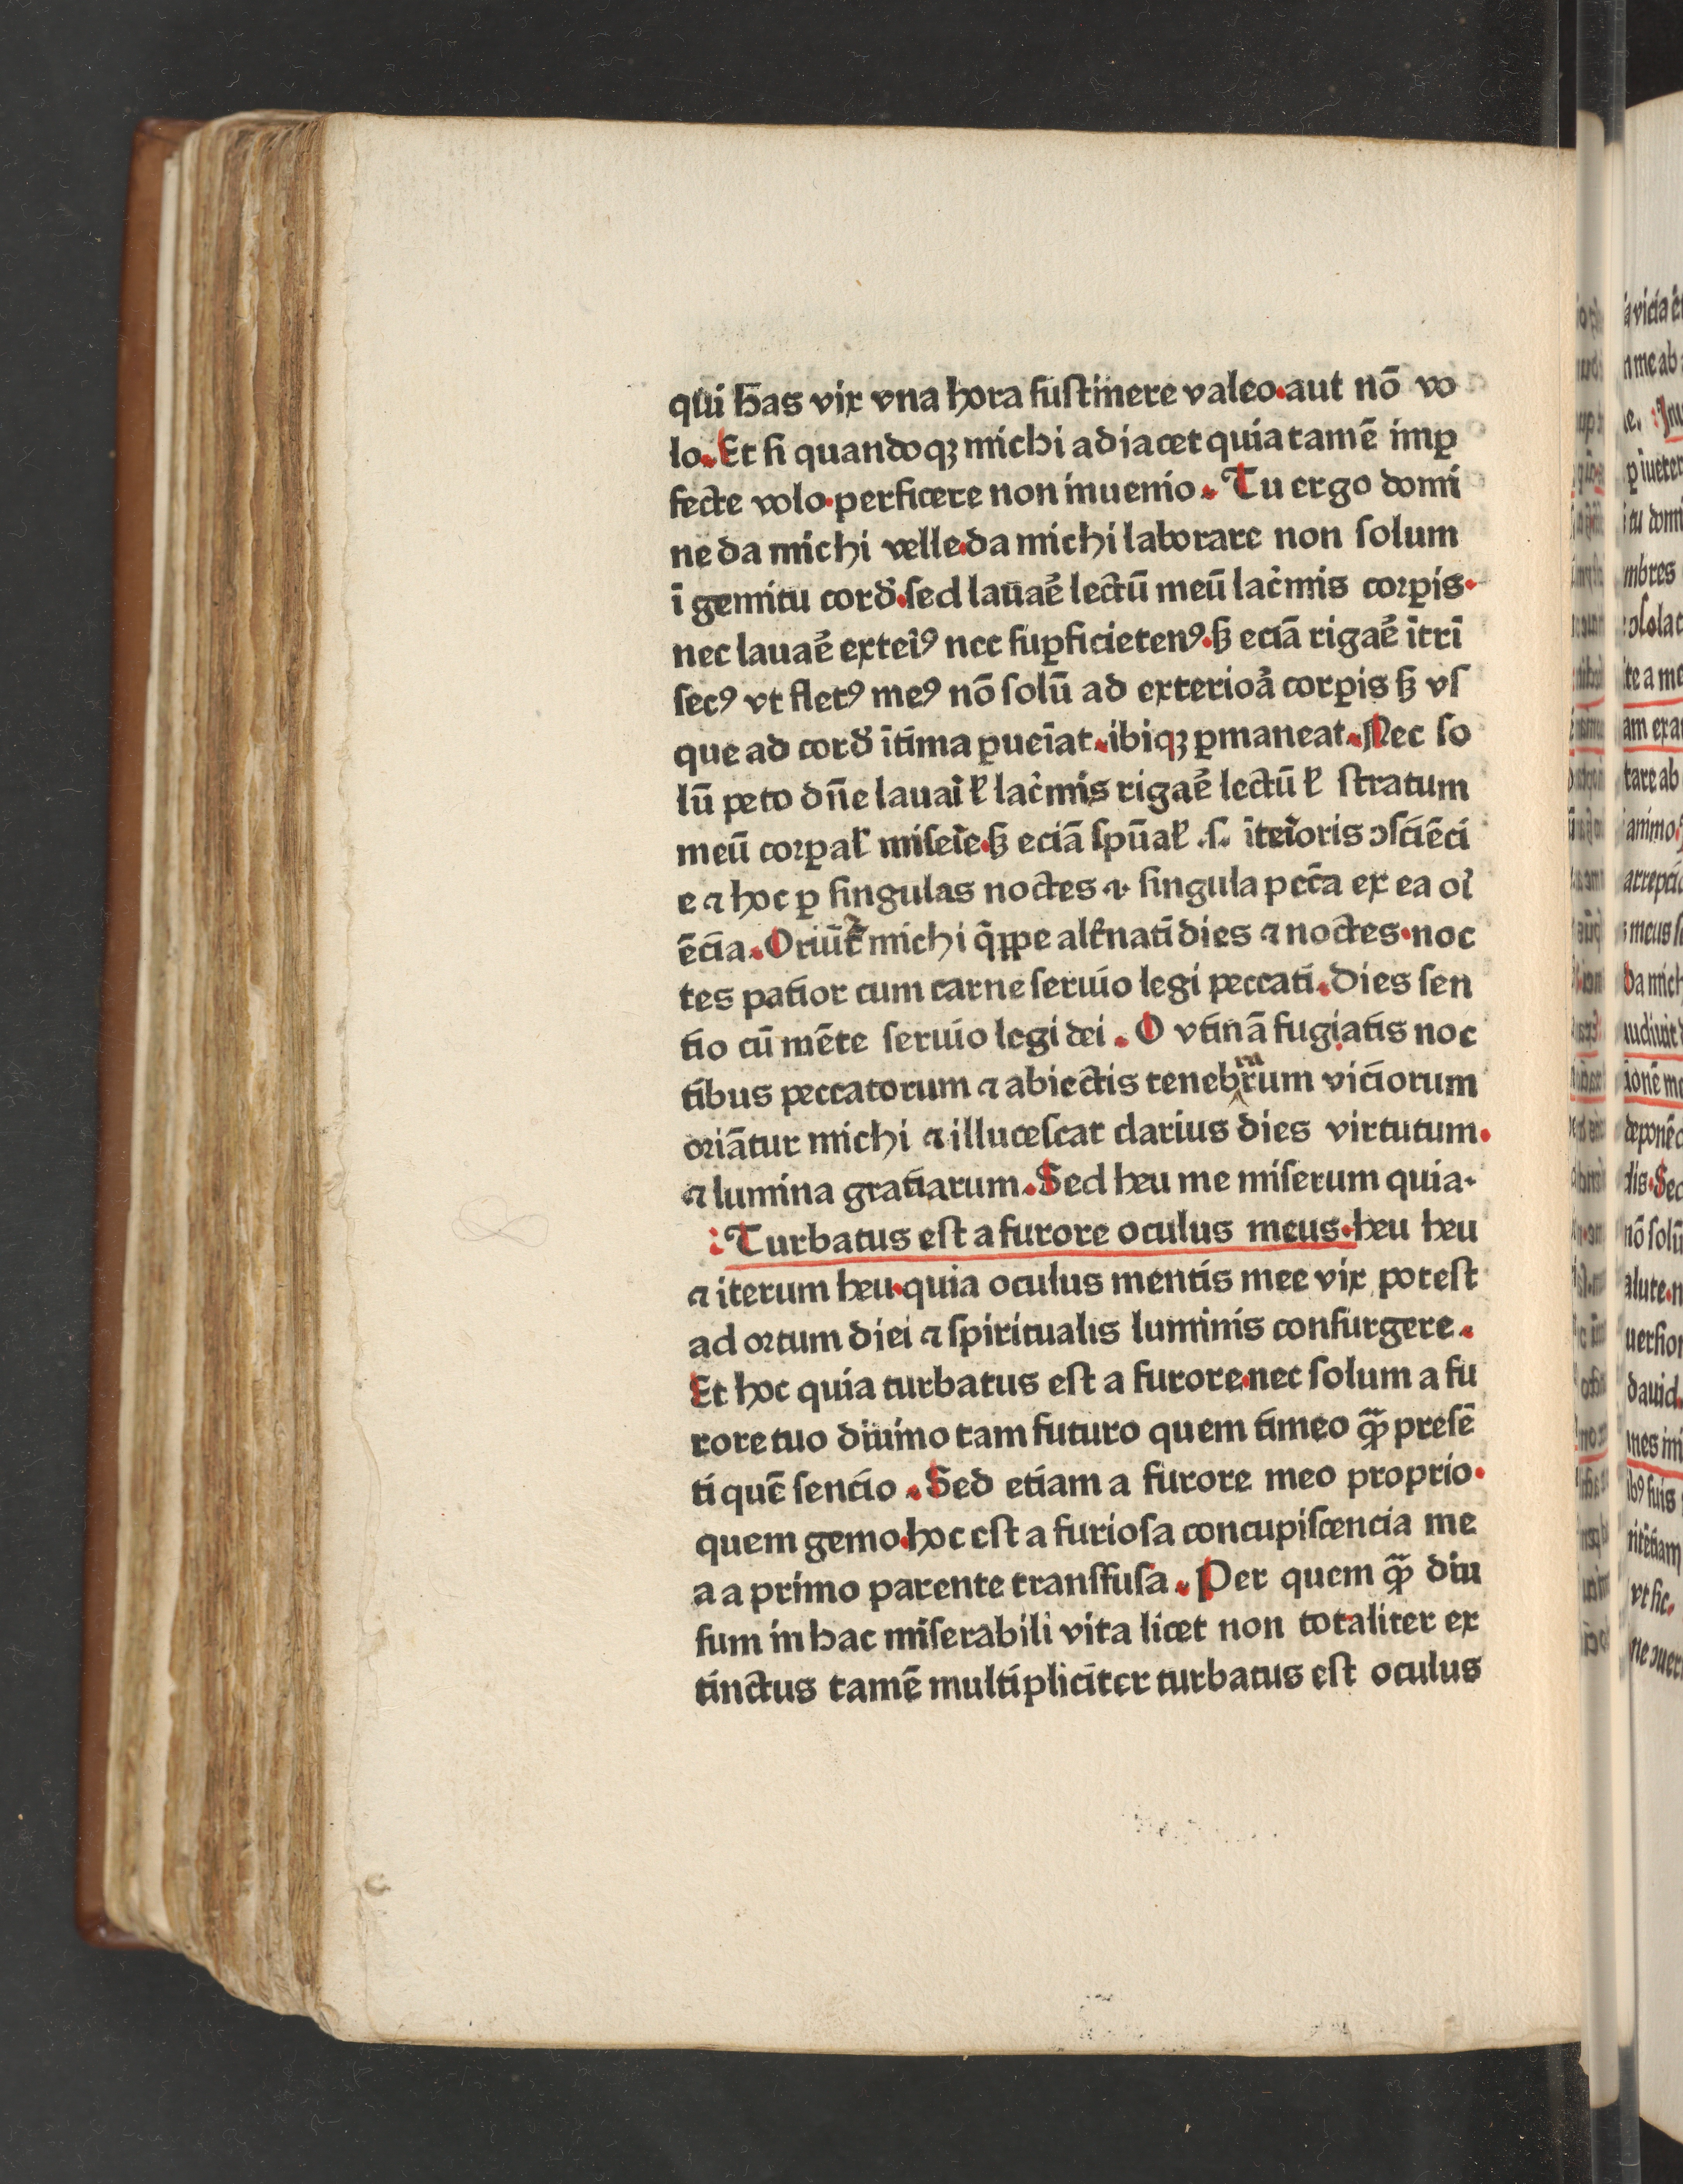 qui has vix vna hora ſuſtinere valeo. aut nō vo
lo. Et ſi quandoqꝫ michi adiacet quia tamē imꝑ
fecte volo. perficere non inuenio. Tu ergo domi
ne da michi velle. da michi laborare non ſolum
ī gemitu cord̕. ſed lauaē lectū meū lac̄mis corꝑis.
nec lauaē exteiꝰ nec ſuꝑficietenꝰ. ſꝫ eciā rigaē ītrī
ſecꝰ vt fletꝰ meꝰ nō ſolū ad exterioā corꝑis ſꝫ vſ
que ad cord̕ ītima ꝑueīat. ibiqꝫ ꝑmaneat. Nec ſo
lū peto dn̄e lauaī ł lac̄mis rigaē lectū ł ſtratum
meū corꝑal̕ miſeīe. ſꝫ eciā ſpūal̕ .ſ. īteīoris ꝯſciēci
e ⁊ hoc ꝑ ſingulas noctes ⁊ ſingula pcc̄a ex ea oī
ēcia. Oriūt᷑ michi q̄ꝑpe alt̕nati dies ⁊ noctes. noc
tes patior cum carne ſeruio legi peccati. Dies ſen
tio cū mēte ſeruio legi dei. O vtinā fugiatis noc
tibus peccatorum ⁊ abiectis tenebrarum viciorum
oriātur michi ⁊ illuceſcat clarius dies virtutum.
⁊ lumina gratiarum. Sed heu me miſerum quia.
Turbatus eſt a furore oculus meus. heu heu
⁊ iterum heu. quia oculus mentis mee vix poteſt
ad ortum diei ⁊ ſpiritualis luminis conſurgere.
Et hoc quia turbatus eſt a furore. nec ſolum a fu
rore tuo diuino tam futuro quem timeo ꝙ̄ preſē
ti quē ſencio. Sed etiam a furore meo proprio.
quem gemo. hoc eſt a furioſa concupiſcencia me
a a primo parente tranſfuſa. Per quem ꝙ̄ diu
ſum in hac miſerabili vita licet non totaliter ex
tinctus tamē multipliciter turbatus eſt oculus